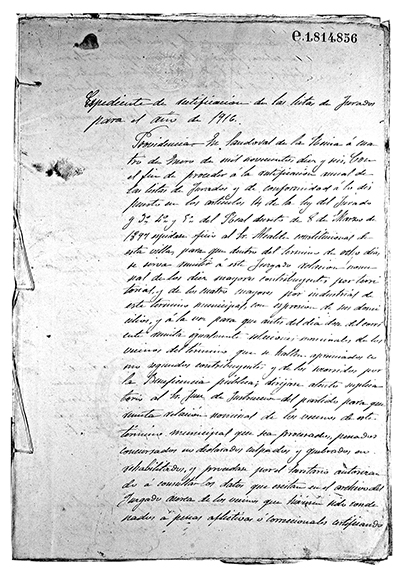 e.1.814.856
Expediente de rectificacion de las listas de Jurados
para el año de 1916.
Providencia. En Sandoval de la Reina á cua-
tro de Enero de mil novecientos diez y seis. Con
el fin de proceder á la rectificación anual de
las listas de Jurados y de conformidad a lo dis
puesto en los artículos 14 de la ley del Jurado
y 3º 4º y 5º del Real decreto de 8 de Marzo de
1897 oficio al Sr Alcalde constitucional de
esta villa, para que dentro del termino de ocho dias,
se sirva remitir á este Juzgado relacion nomi-
nal de los diez mayores contribuyentes por terri
torial, y de los cuatro mayores por industrial de
este termino municipal, con espresion de sus domi
cilios, y á la vez para que antes del dia del corri
ente remita igualmente relaciones nominales de los
vecinos del termino que se hallen apremiados co
mo segundos contribuyentes y de los socorridos por
la Beneficencia pública; dirijase atento suplica
torio al Sr Juez de Instruccion del partido para que
remita relacion nominal de los vecinos de este
término municipal que sean procesados, penados
concursados no declarados culpados y quebrados no
rehabilitados, y procedase por el Secretario autorizan
do á consultar los datos que existan en el archivo del
Juzgado acerca de los vecinos que hayan sido conde
nados á penas aflictivas ó correccionales certificando